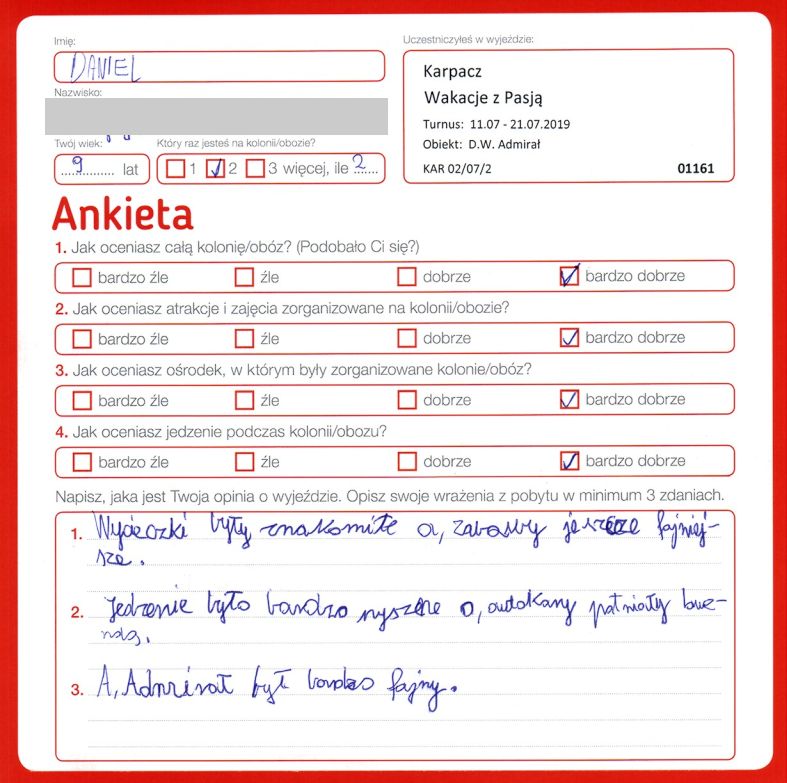 Imię:
DANIEL
Nazwisko:
Twój wiek:
9 lat
Który raz jesteś na kolonii/obozie?
1 2 3 więcej, ile 2
Uczestniczyłeś w wyjeździe:
Karpacz
Wakacje z Pasją
Turnus: 11.07 - 21.07.2019
Obiekt: D.W. Admirał
KAR 02/07/2 01161
Ankieta
1. Jak oceniasz całą kolonię/obóz? (Podobało Ci się?)
bardzo źle źle dobrze bardzo dobrze
2. Jak oceniasz atrakcje i zajęcia zorganizowane na kolonii/obozie?
bardzo źle źle dobrze bardzo dobrze
3. Jak oceniasz ośrodek, w którym były zorganizowane kolonie/obóz?
bardzo źle źle dobrze bardzo dobrze
4. Jak oceniasz jedzenie podczas kolonii/obozu?
bardzo źle źle dobrze bardzo dobrze
Napisz, jaka jest Twoja opinia o wyjeździe. Opisz swoje wrażenia z pobytu w minimum 3 zdaniach.
1. Wycieczki były znakomite a, zabawy jeszcze fajniej-
sze.
2. Jedzenie było bardzo pyszne a, autokary
3. A, Admirał był bardzo fajny.